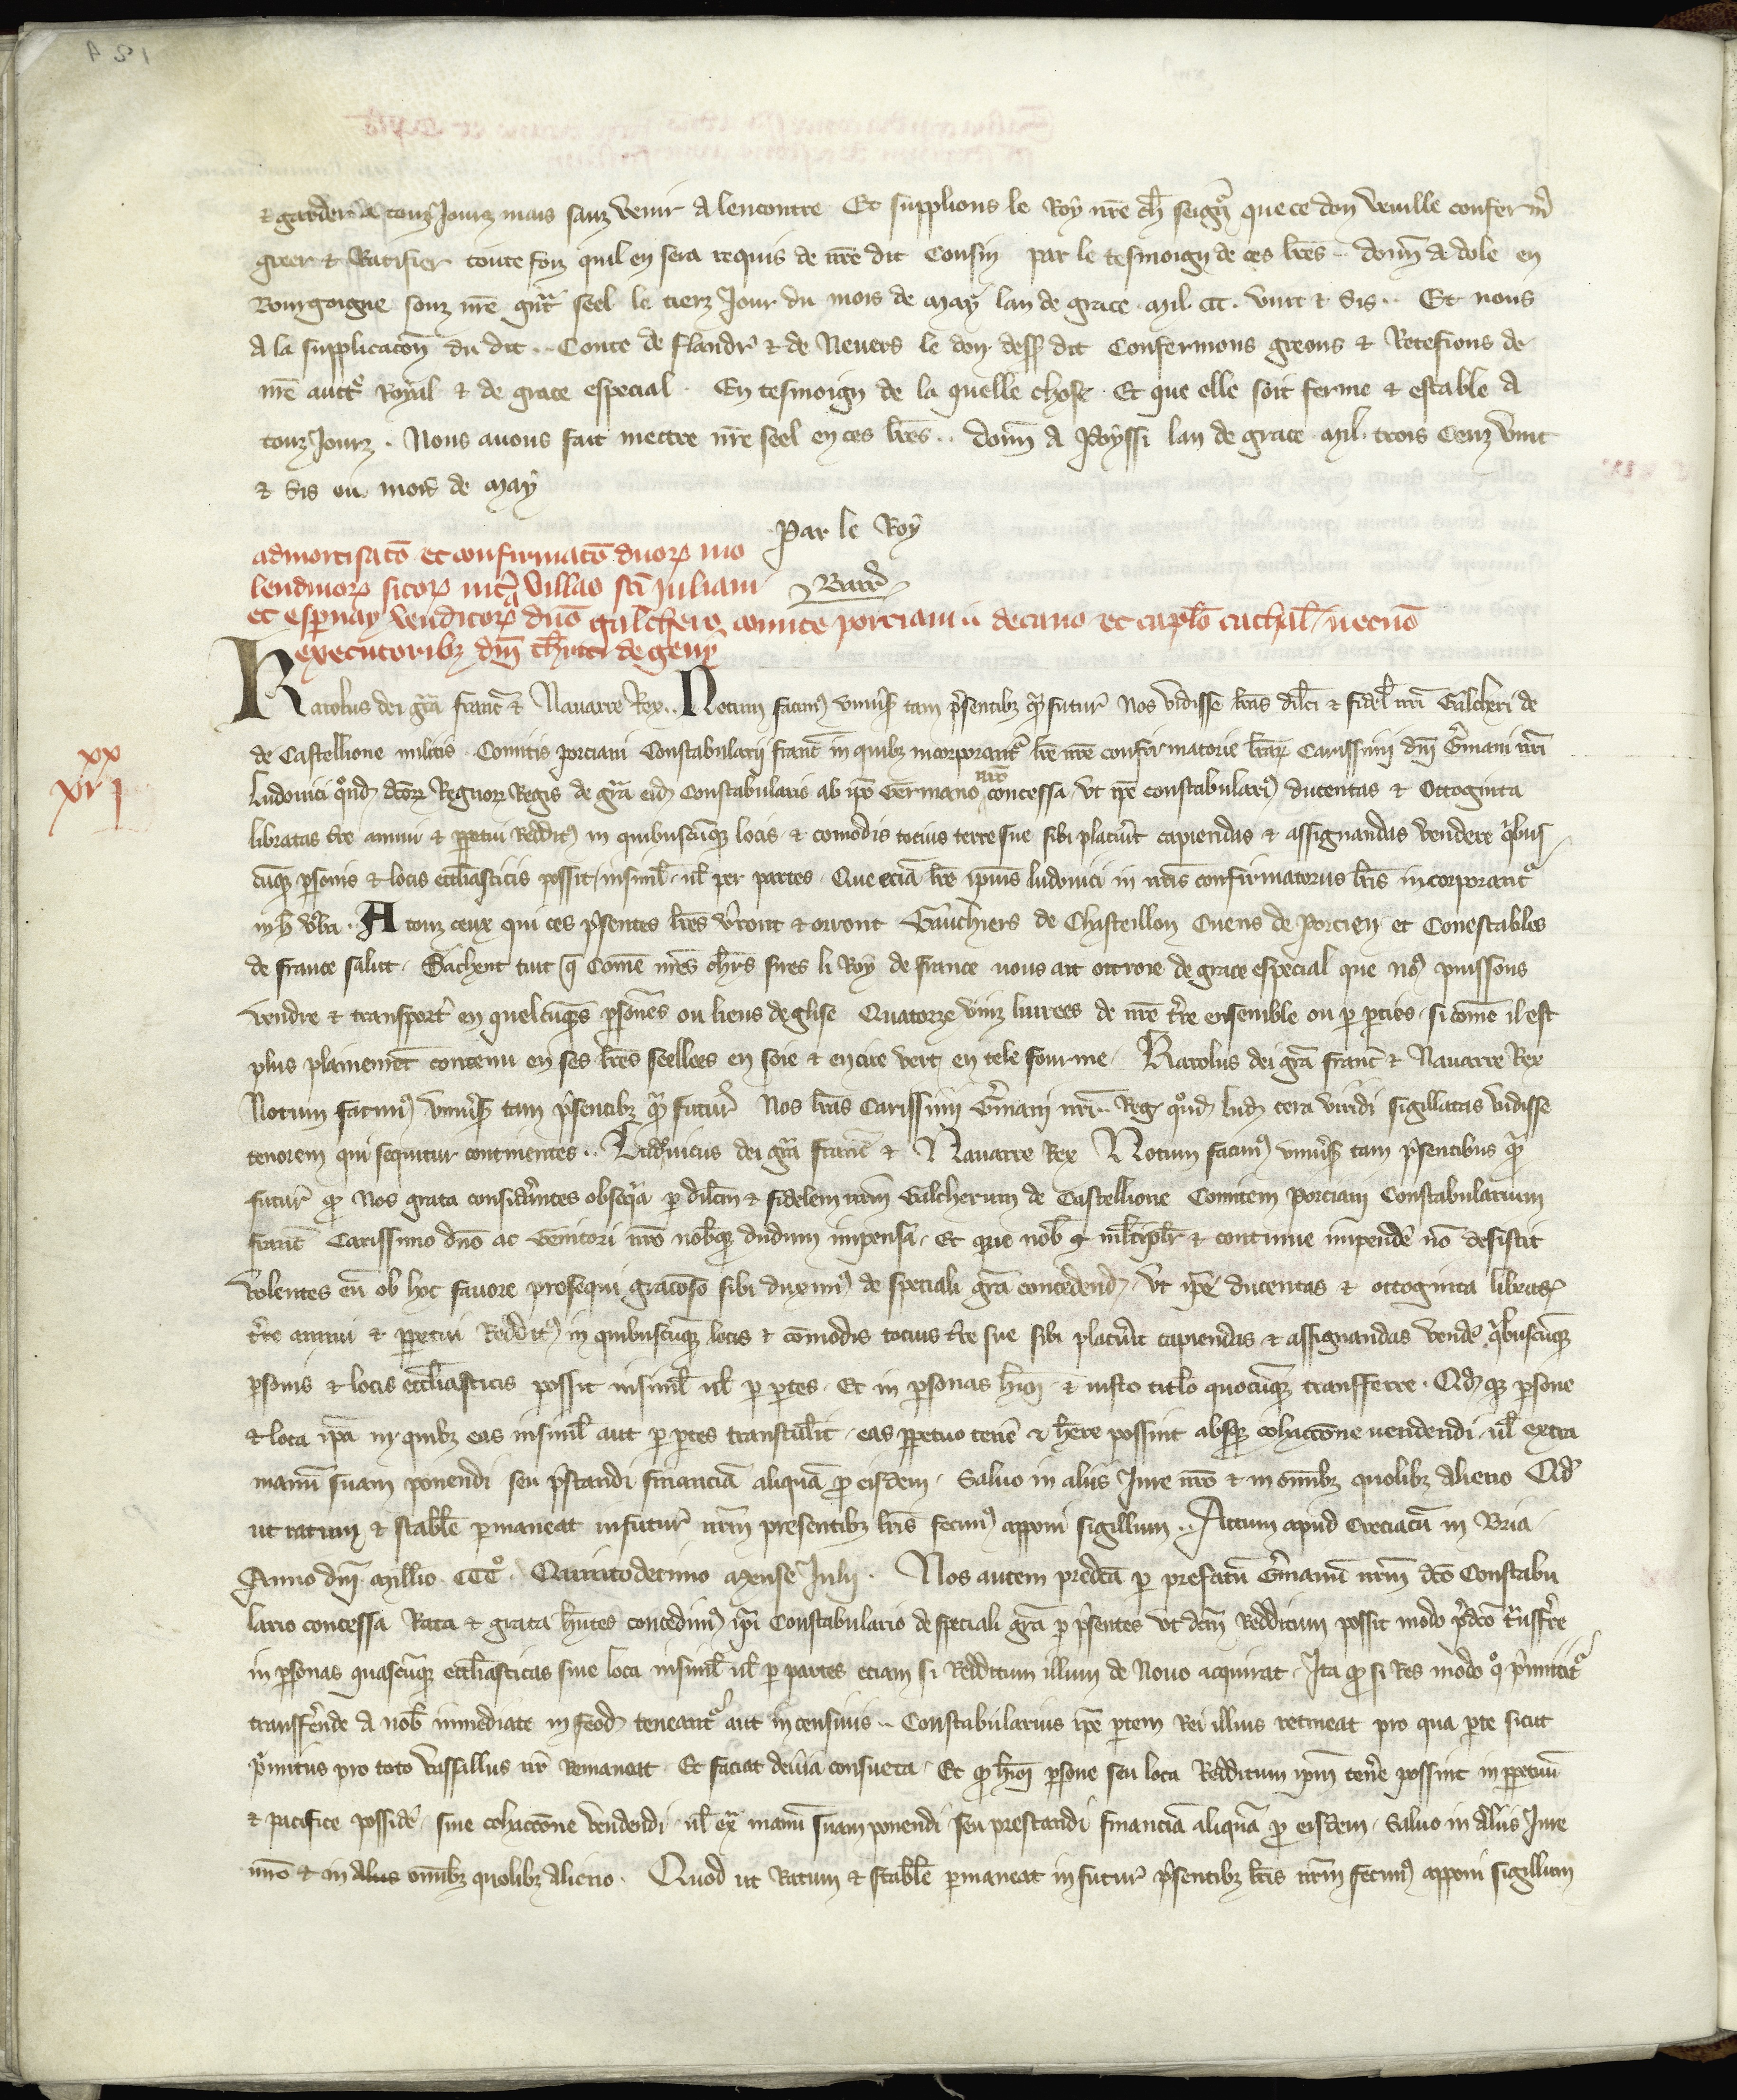 & garder a touz Jourz mais sanz venir a lencontre Et supplions le Roy nre ch seigñ que ce don veuille confermer
greer & Ratifier toute foiz quil en sera requis de nre dit Cousin par le tesmoign de ces lres .. donn a dole en
Bourgoigne souz nre gnt seel le tierz Jour du mois de may lan de grace mil ccc vint & sis .. Et nous
A la supplicacon du dit .. Conte de flandr & de Nevers le don dess dit Confermons greons & Retefions de
nre auct Royal & de grace especial . En tesmoign de la quelle chose . Et que elle soit ferme & estable A
touz Jourz . Nous avons fait mettre nre seel en ces lres .. donn A Poyssi lan de grace mil trois Cenz vint
& sis ou mois de may
Par le Roy
admortisato et confirmato duor mo
lendinor sitor int villas sci Juliani
et espnay venditor dno galchero comite porciani a decano et caplo cathal necno
executoribz dni
Karolus dei gra franc & Navarre Rex .. Notum facim univs tam psentibz q futur Nos vidisse lras dilci & fidel nri Galcheri de
de Castellione militis Comitis porciani Constabularii franc in quibz incorporant lre nre confirmatorie lrar Carissimi dni Gmani nri
xx
xvj
Ludovici qnd dcor Regnor Regis de gra eid Constabulario ab ipo Germano nro concessa ut ipe constabulari ducentas & Octoginta
libratas tre annui & ppetui Reddit in quibuscunq locis & comodis totius terre sue sibi placuit capiendas & assignandas vendere qbus
cunq psonis & locis ecclasticis possit insimul vl per partes . Que ecia lre ipius ludovici in nris confirmatoriis lris incorporant
in h vba . A touz ceux qui ces psentes lres vront & orront Gauchiers de Chasteillon Cuens de Porcien et Conestables
de france salut . Sachent tuit q Come nres chrs sires li Roy de france nous ait ottroie de grace especial que nos puissons
vendre & transport en quelcuqs psones ou lieus deglise Quatorze vinz livrees de nre tre ensemble ou p pties si come il est
plus plainemt contenu en ses lres seellees en soie & en cire vert en tele fourme . Karolus dei gra franc & Navarre Rex
Notum facim univs tam psentibz q futur Nos lras Carissimi Gmani nri .. Reg qnd lud cera viridi sigillatas vidisse
tenorem qui sequitur continentes .. Ludovicus dei gra franc & Navarre Rex Notum facim univs tam psentibus q
futur q Nos grata considantes obsequia p dilcm & fidelem nrm Galcherum de Castellione Comitem Porciani Constabularium
franc Carissimo dno ac Genitori nro nobq dudum impensa . Et que nob mltiplr & continue impende no desistit
Volentes eu ob hoc favore prosequi gracoso sibi duxim de speciali gra concedend . Ut ipe ducentas & octoginta libras
tre annui & ppetui Reddit in quibuscunq locis & comodis totius tre sue sibi placuit capiendas & assignandas vende qbuscunq
psonis & locis ecclasticis possit insimul vl p ptes . Et in psonas hmoi & iusto titlo quocunq transferre . Qdq psone
& loca ipa in quibz eas insimul aut p ptes transtulit . eas ppetuo tene & here possint absq cohaccone vendendi . vl extra
manu suam ponendi seu pstandi financia aliqua p eisdem . Salvo in aliis Jure nro & in omibz quolibz alieno Qd
ut ratum & stabile pmaneat in futur nrm presentibz lris fecim apponi sigillum .. Actum apud Creciacu in Bria
Anno dni millio CCC Quintodecimo Mense Julii . Nos autem predcta p prefatu Gmanu nrm dco Constabu
lario concessa Rata & grata hntes concedim ipi Constabulario de speciali gra p psentes ut dcm Redditum possit modo pdco tnsffre
in psonas quascunq ecclasticas sive loca insimul vl p partes etiam si Redditum illum de Novo acquirat . Ita q si Res modo q pmittit
transfferende A nob immediate in feod teneant aut in censivis .. Constabularius ipe ptem Rei illius retineat pro qua pte sicut
pmitus pro toto vassallus nr Remaneat . Et faciat devia consueta . Et q hmoi psone seu loca Redditum ipm tene possint in ppetuu
& pacifice posside . sine cohaccone vendendi vl ex manu suam ponendi seu prestandi financia aliqua p eisdem . Salvo in aliis Jure
nro & in alias omibz quolibz alieno . Quod ut Ratum & stabile pmaneat in futur psentibz lris nrm fecim apponi sigillum